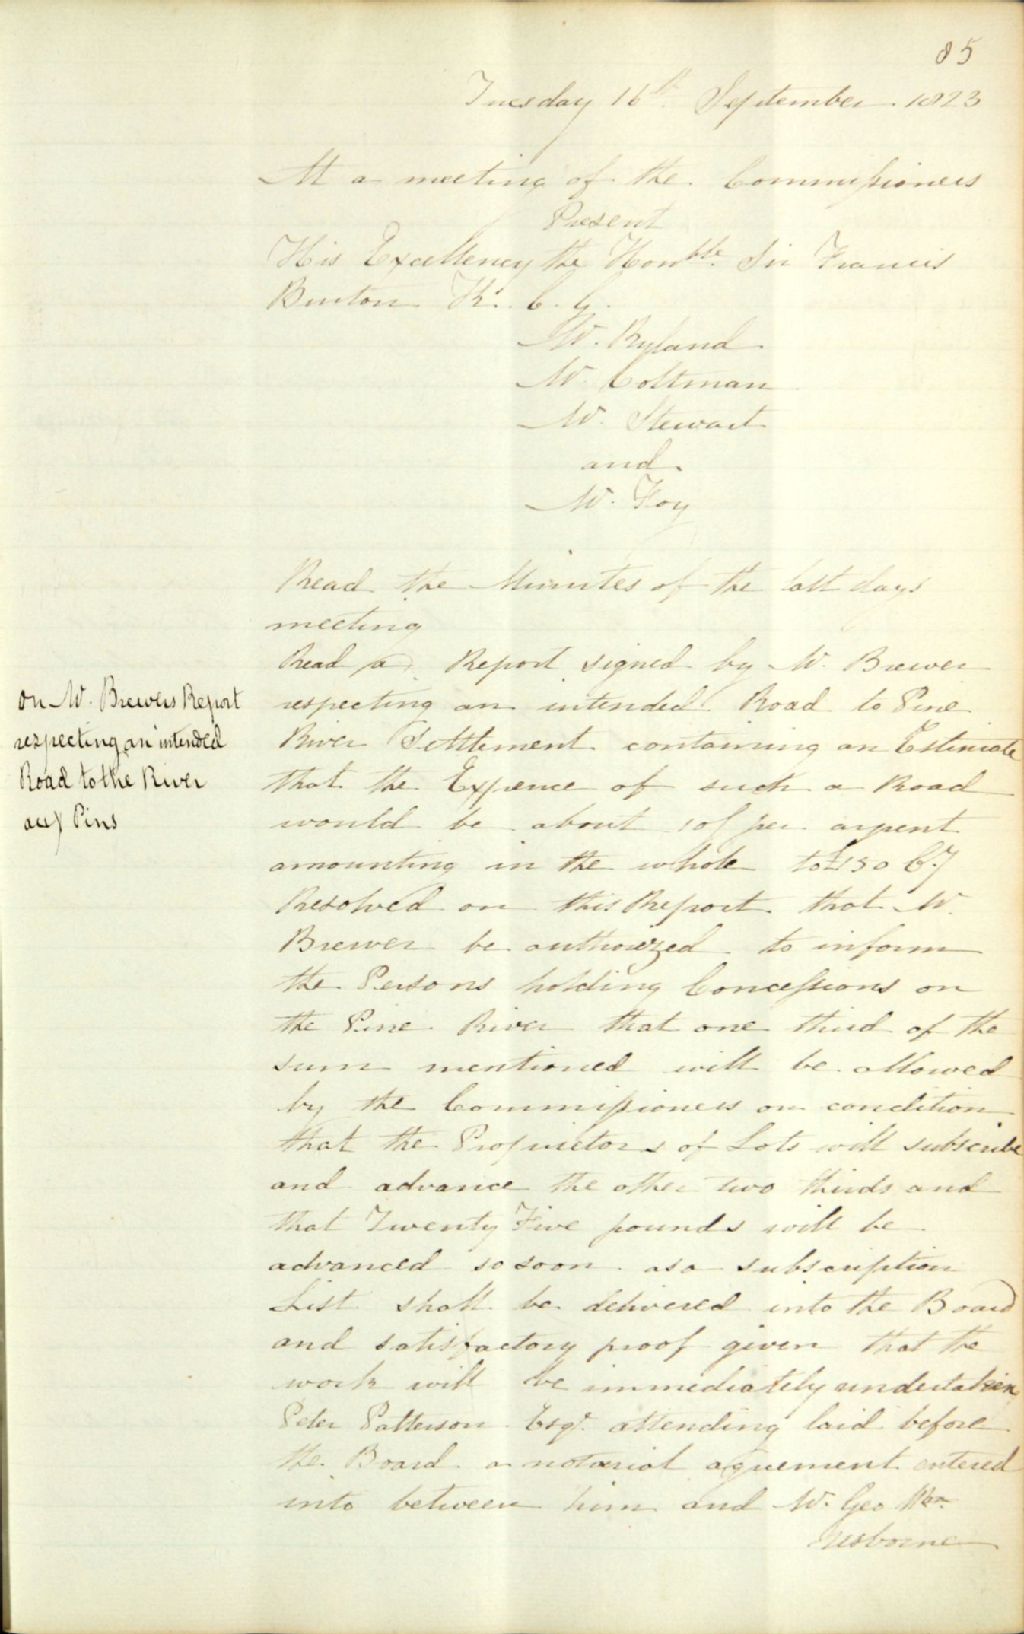 85
Tuesday 16th September 1823
At a meeting of the Commissioners
Present
His Excellency the Honble. Sir Francis
Burton Kt. C. G.
Mr. Ryland
Mr. Coltman
Mr. Stewart
and
Mr. Foy
Read the Minutes of the last days
meeting
Read a Report signed by Mr. Brewer
On Mr. Brewers Report
respecting an intended
Road to the River
aux Pins
respecting an intended Road to Pine
River Settlement containing an Estimate
that the Expence of such a Road
would be about 10/ per arpent
amounting in the whole to £150 Cy
Resolved on this Report that Mr.
Brewer be authorized to inform
the Persons holding Concessions on
the Pine River that one third of the
sum mentioned will be allowed
by the Commissioners on condition
that the Proprietors of Lots will subscribe
and advance the other two thirds and
that Twenty Five pounds will be
advanced so soon as a subscription
List shall be delivered into the Board
and satisfactory proof given that the
work will be immediately undertaken
Peter Patterson Esqr. attending laid before
the Board a notarial agreement entered
into between him and Mr. Geo Wm.
Usborne